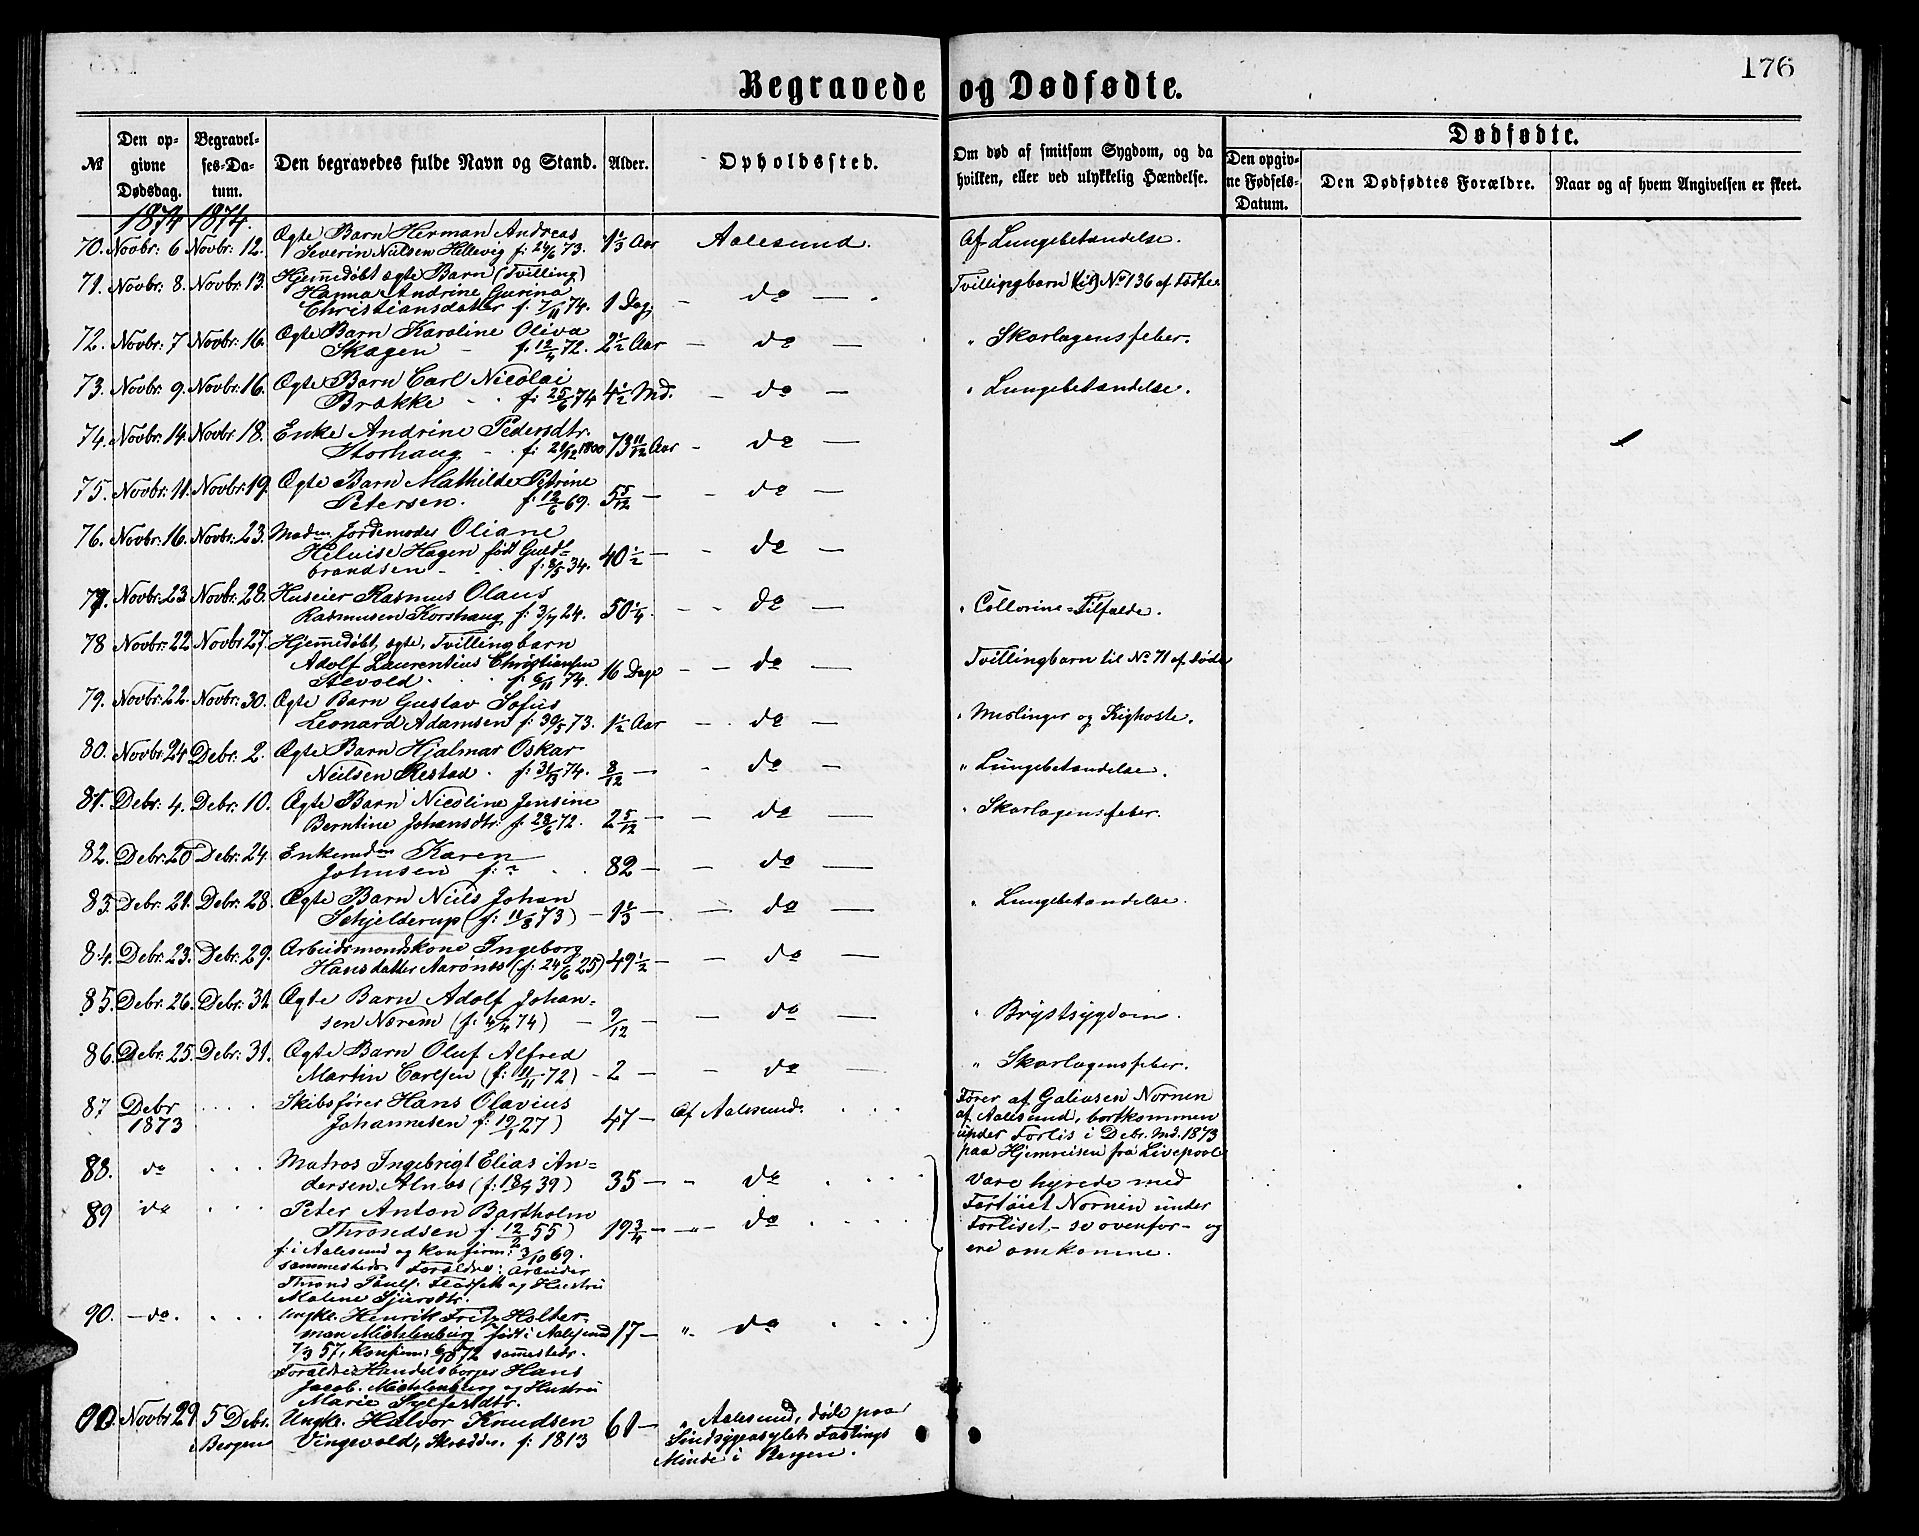 176
Begravede og Dødfødte.
№
Den op-
givne
Dødsdag.
Begravel-
ses-Da-
tum.
Den begravedes fulde Navn og Stand.
Alder.
Opholdssted.
Om død af smitsom Sygdom, og da
hvilken, eller ved ulykkelig Hændelse.
Dødfødte.
Den opgiv-
ne Fødsels-
Datum.
Den Dødfødtes Forældre.
Naar og af hvem Angivelsen er skeet.
1874 1874.
70. Novbr: 6 Novbr: 12. Ægte Barn Herman Andreas
Severin Nielsen Hellevig f: 29/6 73. 1 1/3 Aar Aalesund. Af Lungebetændelse.
71. Novbr: 8. Novbr: 13. Hjemmedøbt ægte Barn (Tvilling)
Hanna Andrine Gurina
Christiansdatter f. 7/11 74. 1 Dag – do – Tvillingbarn (til) No 136 af Fødte
72. Novbr: 7 Novbr: 16. Ægte Barn Karoline Oliva
Skagen – f. 12/4 72. 2 1/2 Aar – do – " Skarlagensfeber.
73. Novbr: 9. Novbr: 16. Ægte Barn Carl Nicolai
Brække - - f: 25/6 74 4 1/2 Md. – do – " Lungebetændelse.
74. Novbr: 14. Novbr 18. Enke Andrine Pedersdtr.
Storhaug - - f: 29/12 1800 73 11/12 Aar – do –
75. Novbr: 11. Novbr: 19. Ægte Barn Mathilde Petrine
Petersen. f: 12/6 69. 5 5/12 – – do –
76. Novbr: 16. Novbr: 23. Madm. Jordemoder Oliane
Helvise Hagen født Guld-
brandsen - - f: 8/5 34. 40 1/2 – – do –
77. Novbr: 23 Novbr: 28. Huseier Rasmus Olaus
Rasmusen Korshaug f: 3/7 24. 50 1/4 – – do – " Collorine-Tilfælde.
78 Novbr: 22 Novbr 27. Hjemmedøbt, ægte, Tvillingbarn
Adolf Laurentius Christiansen
Alvold. f: 6/11 74. 16 Dage – – do – Tvillingbarn til No 71 af døde
79. Novbr: 22. Novbr: 30. Ægte Barn Gustav Sofus
Leonard Adamsen f: 30/5 73. 1 1/2 Aar – do – " Meslinger og Kighoste.
80. Novbr: 24 Debr: 2. Ægte Barn Hjalmar Oskar
Nielsen Restad. f: 31/3 74. 8/12 – – do – " Lungebetændelse.
81. Debr: 4. Debr: 10. Ægte Barn Nicoline Jensine
Berntine Johansdtr: f: 28/6 72. 2 5/12 – – do – " Skarlagensfeber.
82. Debr: 20 Debr: 24. Enkemdm Karen
Johnsen f: ? 82 – – do –
83. Debr: 21. Debr: 28. Ægte Barn Niels Johan
Schjelderup (f: 11/8 73) – 1 1/3 – – do – " Lungebetændelse.
84. Debr: 23. Debr: 29. Arbeidsmandskone Ingeborg
Hansdatter Aarønes (f: 24/6 25) 49 1/2 – – do –
85. Debr: 26. Debr: 31. Ægte Barn Adolf Johan-
sen Nærem (f: 4/4 74) – 9/12 – do – " Brystsygdom.
86. Debr: 25. Debr: 31. Ægte Barn Oluf Alfred
Martin Carlsen (f: 11/11 72) – 2 – – do – " Skarlagensfeber.
87 Debr
1873 Skibsfører Hans Olavius
Johannesen f: 19/1 27) 47 – Af Aalesund. Fører af Galiasen Nornen
af Aalesund, bortkommen
under Forlis i Debr. Md. 1873
paa Hjemreisen fra Livepool
88. do Matros Ingebrigt Elias An-
dersen Alnæs (f: 18/9 39) 35 – – do vare hyrede med
89 do Peter Anton Bartholm
Throndsen f. 12/2 55) 19 3/4 – – do Fartøiet Nornen under
Forliset, - se ovenfor - og
ere omkomne.
f: i Aalesund og konfirm: 3/10 69.
sammesteds. Forældre: Arbeider
Thrond Pouls. Fladseth og Hustru
Malene Sjursdtr.
90. – do. Ungk. Henrik Fritz Holter-
man Michelenburg født i Aalesund 17 – " do
7/3 57, konfirm: 6/10 72 sammesteds.
Forældre Handelsborger Hans
Jacob. Michelenburg og Hustru
Marie Sylfestdtr.
90. Novbr 29 5 Debr.
i Bergen Ungk. Halvor Knudsen
Vingevold, Skrædder. f: 1813 61 – " Aalesund, døde paa
Sindsygeasylet Fastings
Minde i Bergen.